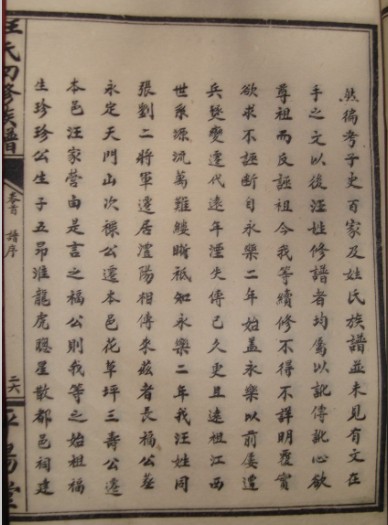 然徧考子史百家及姓氏族譜並未見有文在
手之文以後汪姓修譜者均屬以訛傳訛心欲
尊祖而反誣祖今我等續修不得不詳明覆實
欲求不誣斷自永樂二年始蓋永樂以前屢遭
兵燹變遷代遠年湮失傳已久更且遠祖江西
世系源流萬難縷晰祇知永樂二年我汪姓同
張劉二將軍遷居澧陽相傳來茲者長福公基
永定天門山次祿公遷本邑花草坪三壽公遷
本邑汪家營由是言之福公則我等之始祖福
生珍珍公生子五昂淮龍虎聰星散都邑祠建
汪氏四修族譜
卷首 譜序
二六
平陽堂